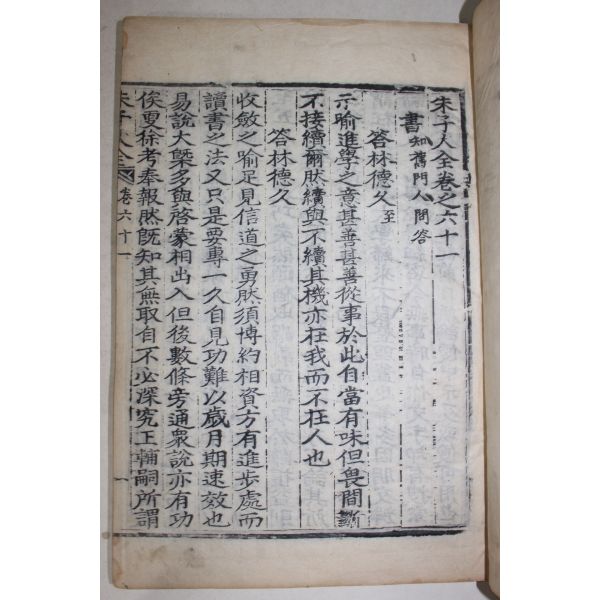 朱子大全卷之六十一
書 知舊門人問答
答林德久 至
示喻進學之意甚善甚善從事於此自當有味但畏間斷
不接續爾然續與不續其機亦在我而不在人也
答林德久
收斂之喻足見信道之勇然須博約相資方有進步處而
讀書之法又只是要專一久自見功難以歲月期速效也
易說大槩多與啓蒙相出入但後數條旁通衆說亦有功
俟更徐考奉報然旣知其無取自不必深究王輔嗣所謂
朱子大全 卷六十一 一